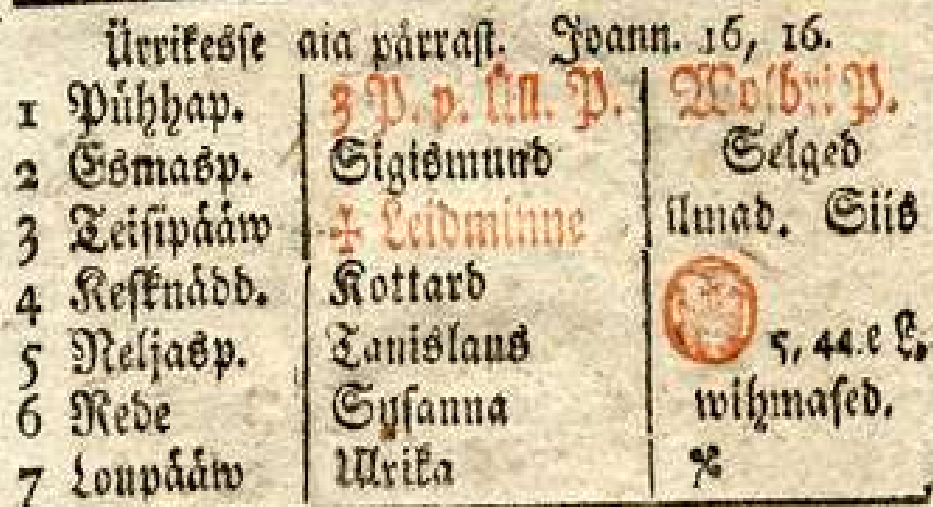 Ürrikesse aia pärrast. Joann. 16, 16.
1 Pühhap. 3 P. p. Üll. P. Wolbri P.
2 Esmasp. Sigismund Selged
3 Teisipääw ✠ Leidminne ilmad. Siis
4 Kesknädd. Kottard
5 Neljasp. Tanislaus 5, 44. e L.
6 Rede Susanna wihmased.
7 Loupääw Ulrika